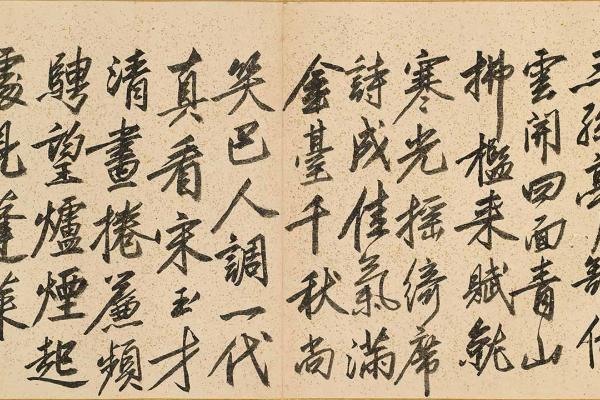 三
雲開四面青山
拂檻来賦就
寒光摇綺席
詩成佳氣滿
金臺千秋尚
笑巴人調一代
真看宋玉才
清晝捲簾頻
騁望爐煙起
處見蓬萊